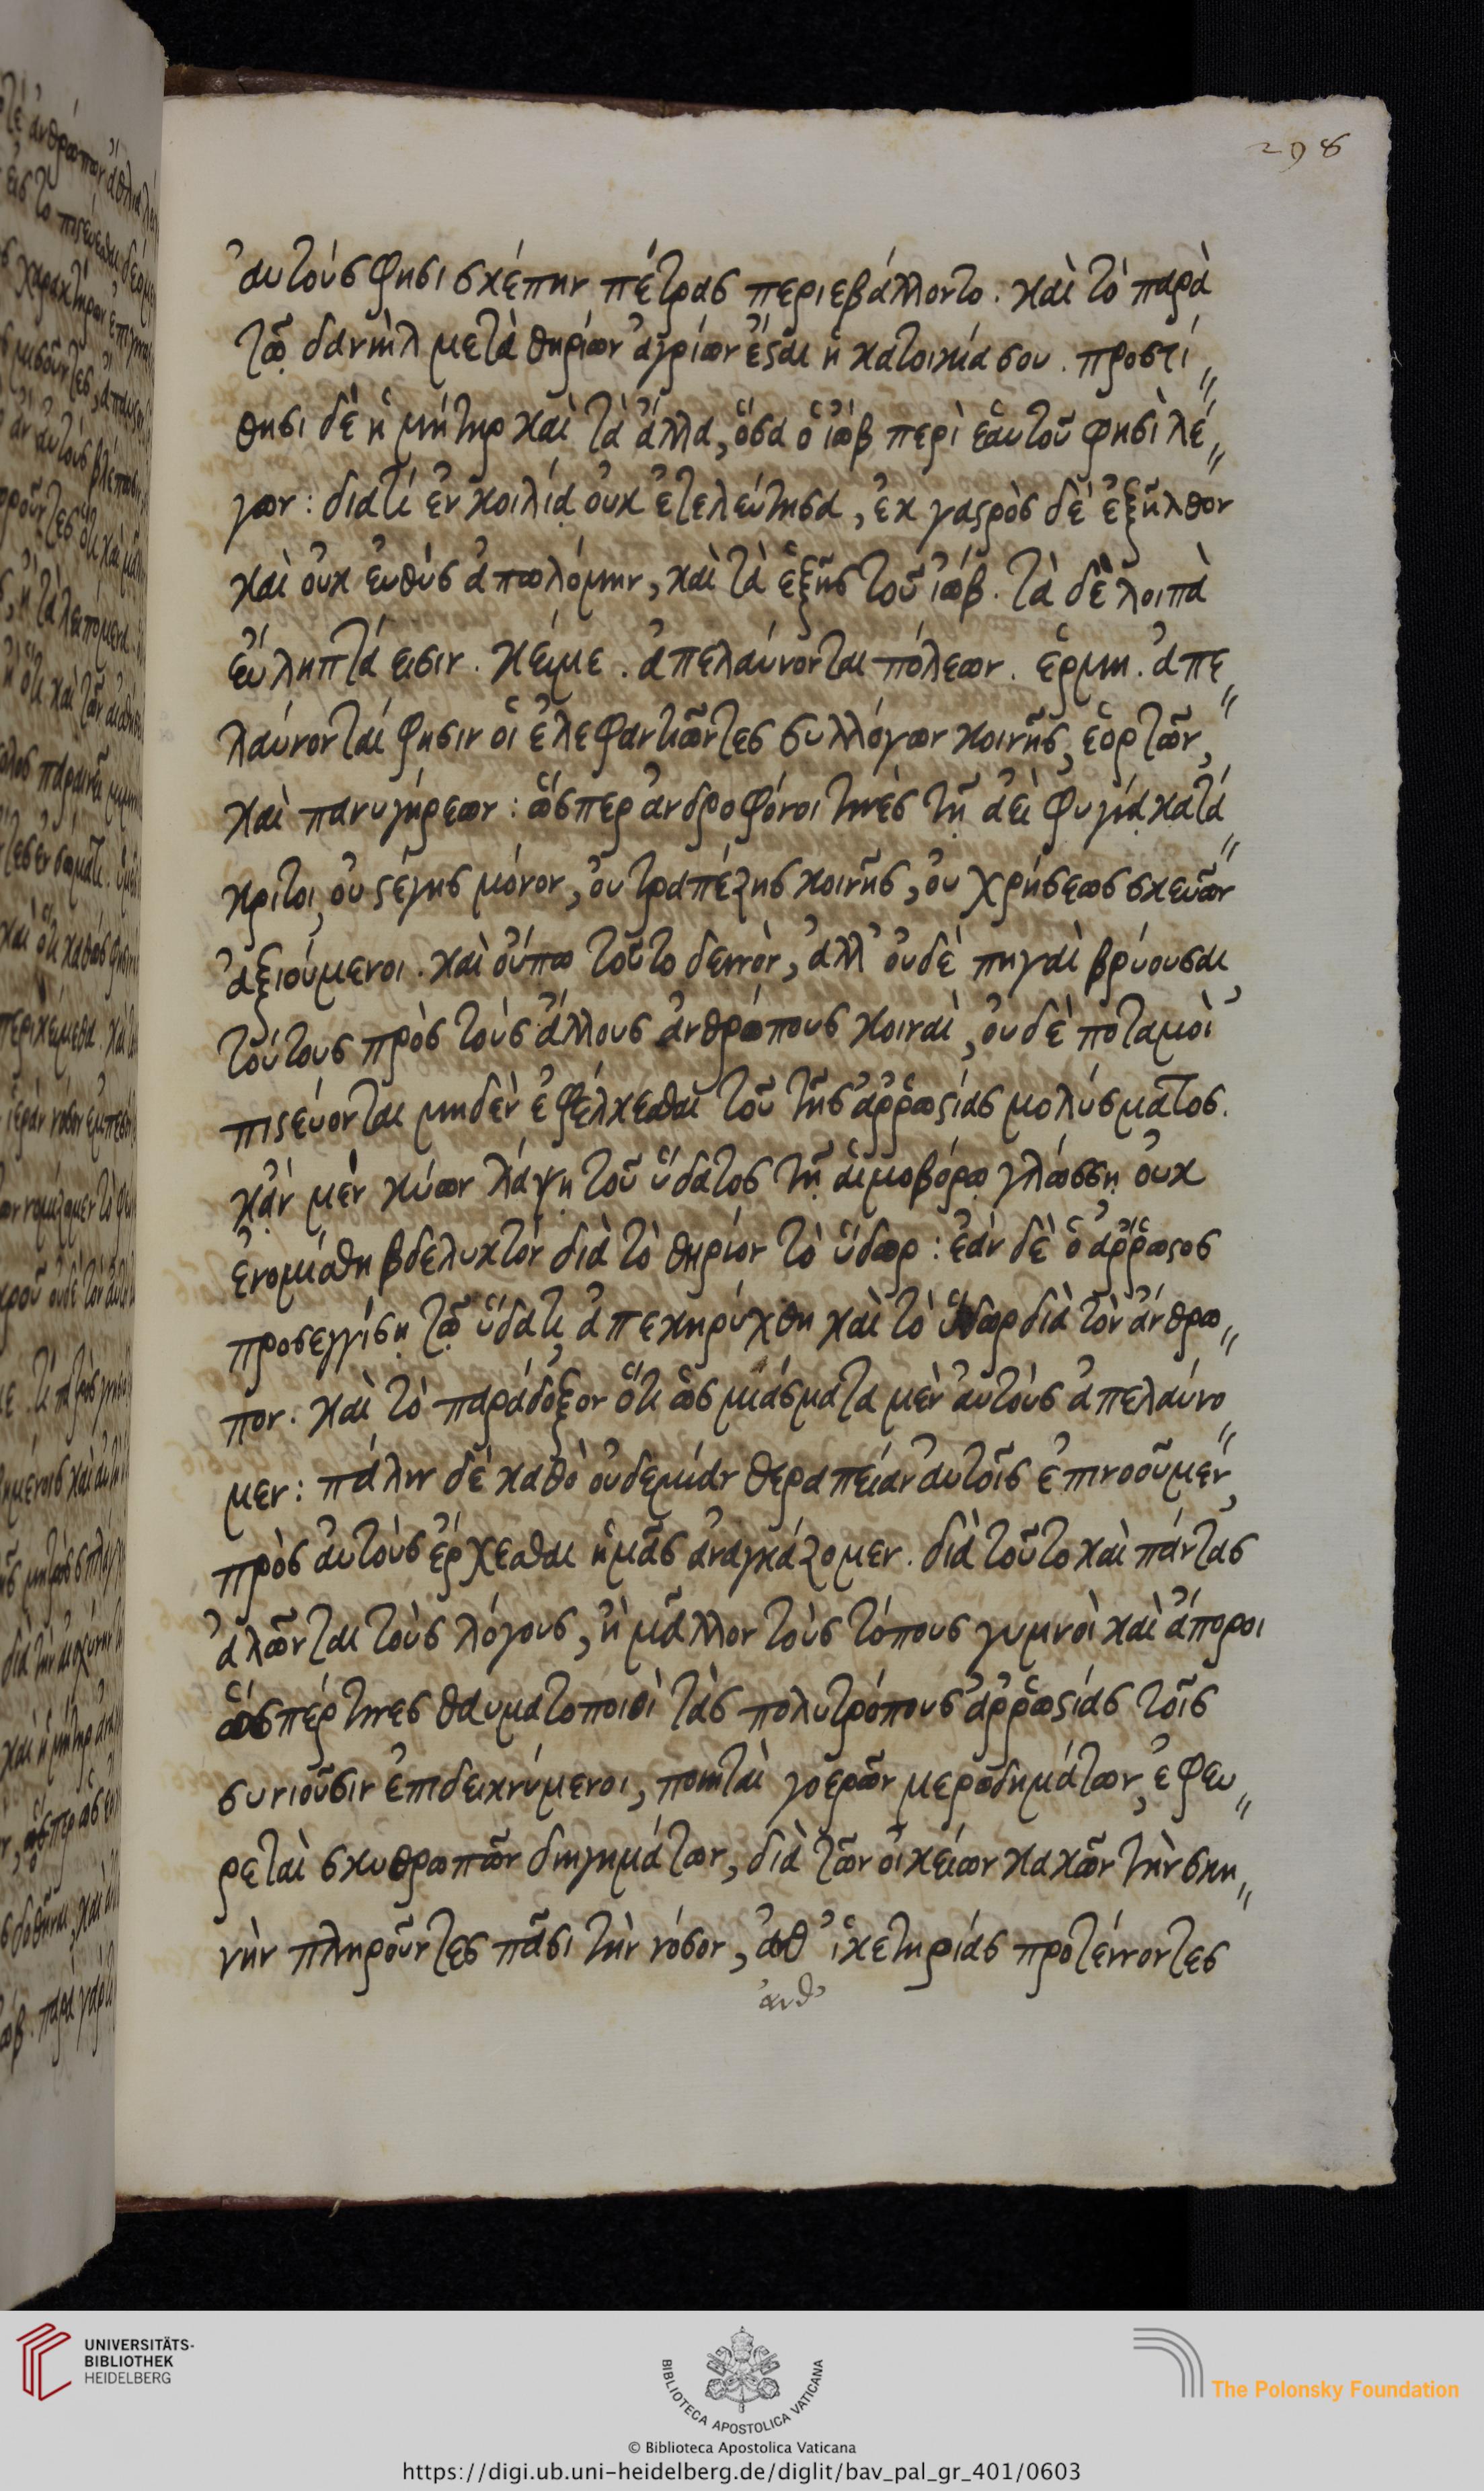 298
αὐτούς φησι σκέπην πέτρας περιεβάλλοντο. καὶ τὸ παρὰ
τῷ δανιὴλ μετὰ θηρίων ἀγρίων ἔσται ἡ κατοικία σου. προστί„
θησι δὲ ἡ μήτηρ καὶ τὰ ἄλλα, ὅσα ὁ ἰὼβ περὶ ἑαυτοῦ φησὶ λέ„
γων: διατί ἐν κοιλίᾳ οὐκ ἐτελεύτησα, ἐκ γαστρὸς δὲ ἐξῆλθον
καὶ οὐκ εὐθὺς ἀπωλόμην, καὶ τὰ ἑξῆς τοῦ ἰώβ. τὰ δὲ λοιπὰ
εὔληπτά εισιν. κείμε. ἀπελαύνονται πόλεων. ἑρμη. ἀπε„
λαύνονταί φησιν οἱ ἐλεφαντιῶντες συλλόγων κοινῆς, ἑορτῶν,
καὶ πανυγήρεων: ὥσπερ ἀνδροφόνοι τινὲς τῇ ἀεὶ φυγίᾳ κατά„
κριτοι, οὐ στέγης μόνον, οὐ τραπέζης κοινῆς, οὐ χρήσεως σκευῶν
ἀξιούμενοι. καὶ οὔπω τοῦτο δεινὸν, ἀλλ' οὐδὲ πηγαὶ βρύουσαι,
τούτους πρὸς τοὺς ἄλλους ἀνθρώπους κοιναὶ, οὐδὲ ποταμοὶ
πιστεύονται μηδὲν ἐφέλκεσθαι τοῦ τῆς ἀῤῥωστίας μολύσματος.
κἂν μὲν κύων λάψῃ τοῦ ὕδατος τῇ αἱμοβόρῳ γλώσσῃ οὐκ
ἐνομίσθη βδελυκτὸν διὰ τὸ θηρίον τὸ ὕδωρ: ἐὰν δὲ ὁ ἄῤῥωστος
προσεγγίσῃ τῷ ὕδατι, ἀπεκηρύχθη καὶ τὸ ὕδωρ διὰ τὸν ἄνθρω„
πον. καὶ τὸ παράδοξον ὅτι ὡς μιάσματα μὲν αὐτοὺς ἀπελαύνο„
μεν: πάλιν δὲ καθὸ οὐδεμίαν θεραπείαν αὐτοῖς ἐπινοοῦμεν,
πρὸς αὐτοὺς ἔρχεσθαι ἡμᾶς ἀναγκάζομεν. διὰ τοῦτο καὶ πάντας
ἀλῶνται τοὺς λόγους, ἢ μᾶλλον τοὺς τόπους γυμνοὶ καὶ ἄποροι
ὥσπέρ τινες θαυματοποιοὶ τὰς πολυτρόπους ἀῤῥωστίας τοῖς
συνιοῦσιν ἐπιδεικνύμενοι, ποιηταὶ γοερῶν μερῳδημάτων, ἐφευ„
ρεταὶ σκυθρωπῶν διηγημάτων, διὰ τῶν οἰκείων κακῶν τὴν σκη„
νὴν πληροῦντες πᾶσι τὴν νόσον, ἀνθ' ἱκετηρίας προτείνοντες
ἀνθ'
UNIVERSITÄTS-
BIBLIOTHEK
HEIDELBERG
BIBLIOTECA APOSTOLICA VATICANA
The Polonsky Foundation
© Biblioteca Apostolica Vaticana
https://digi.ub.uni-heidelberg.de/diglit/bav_pal_gr_401/0603